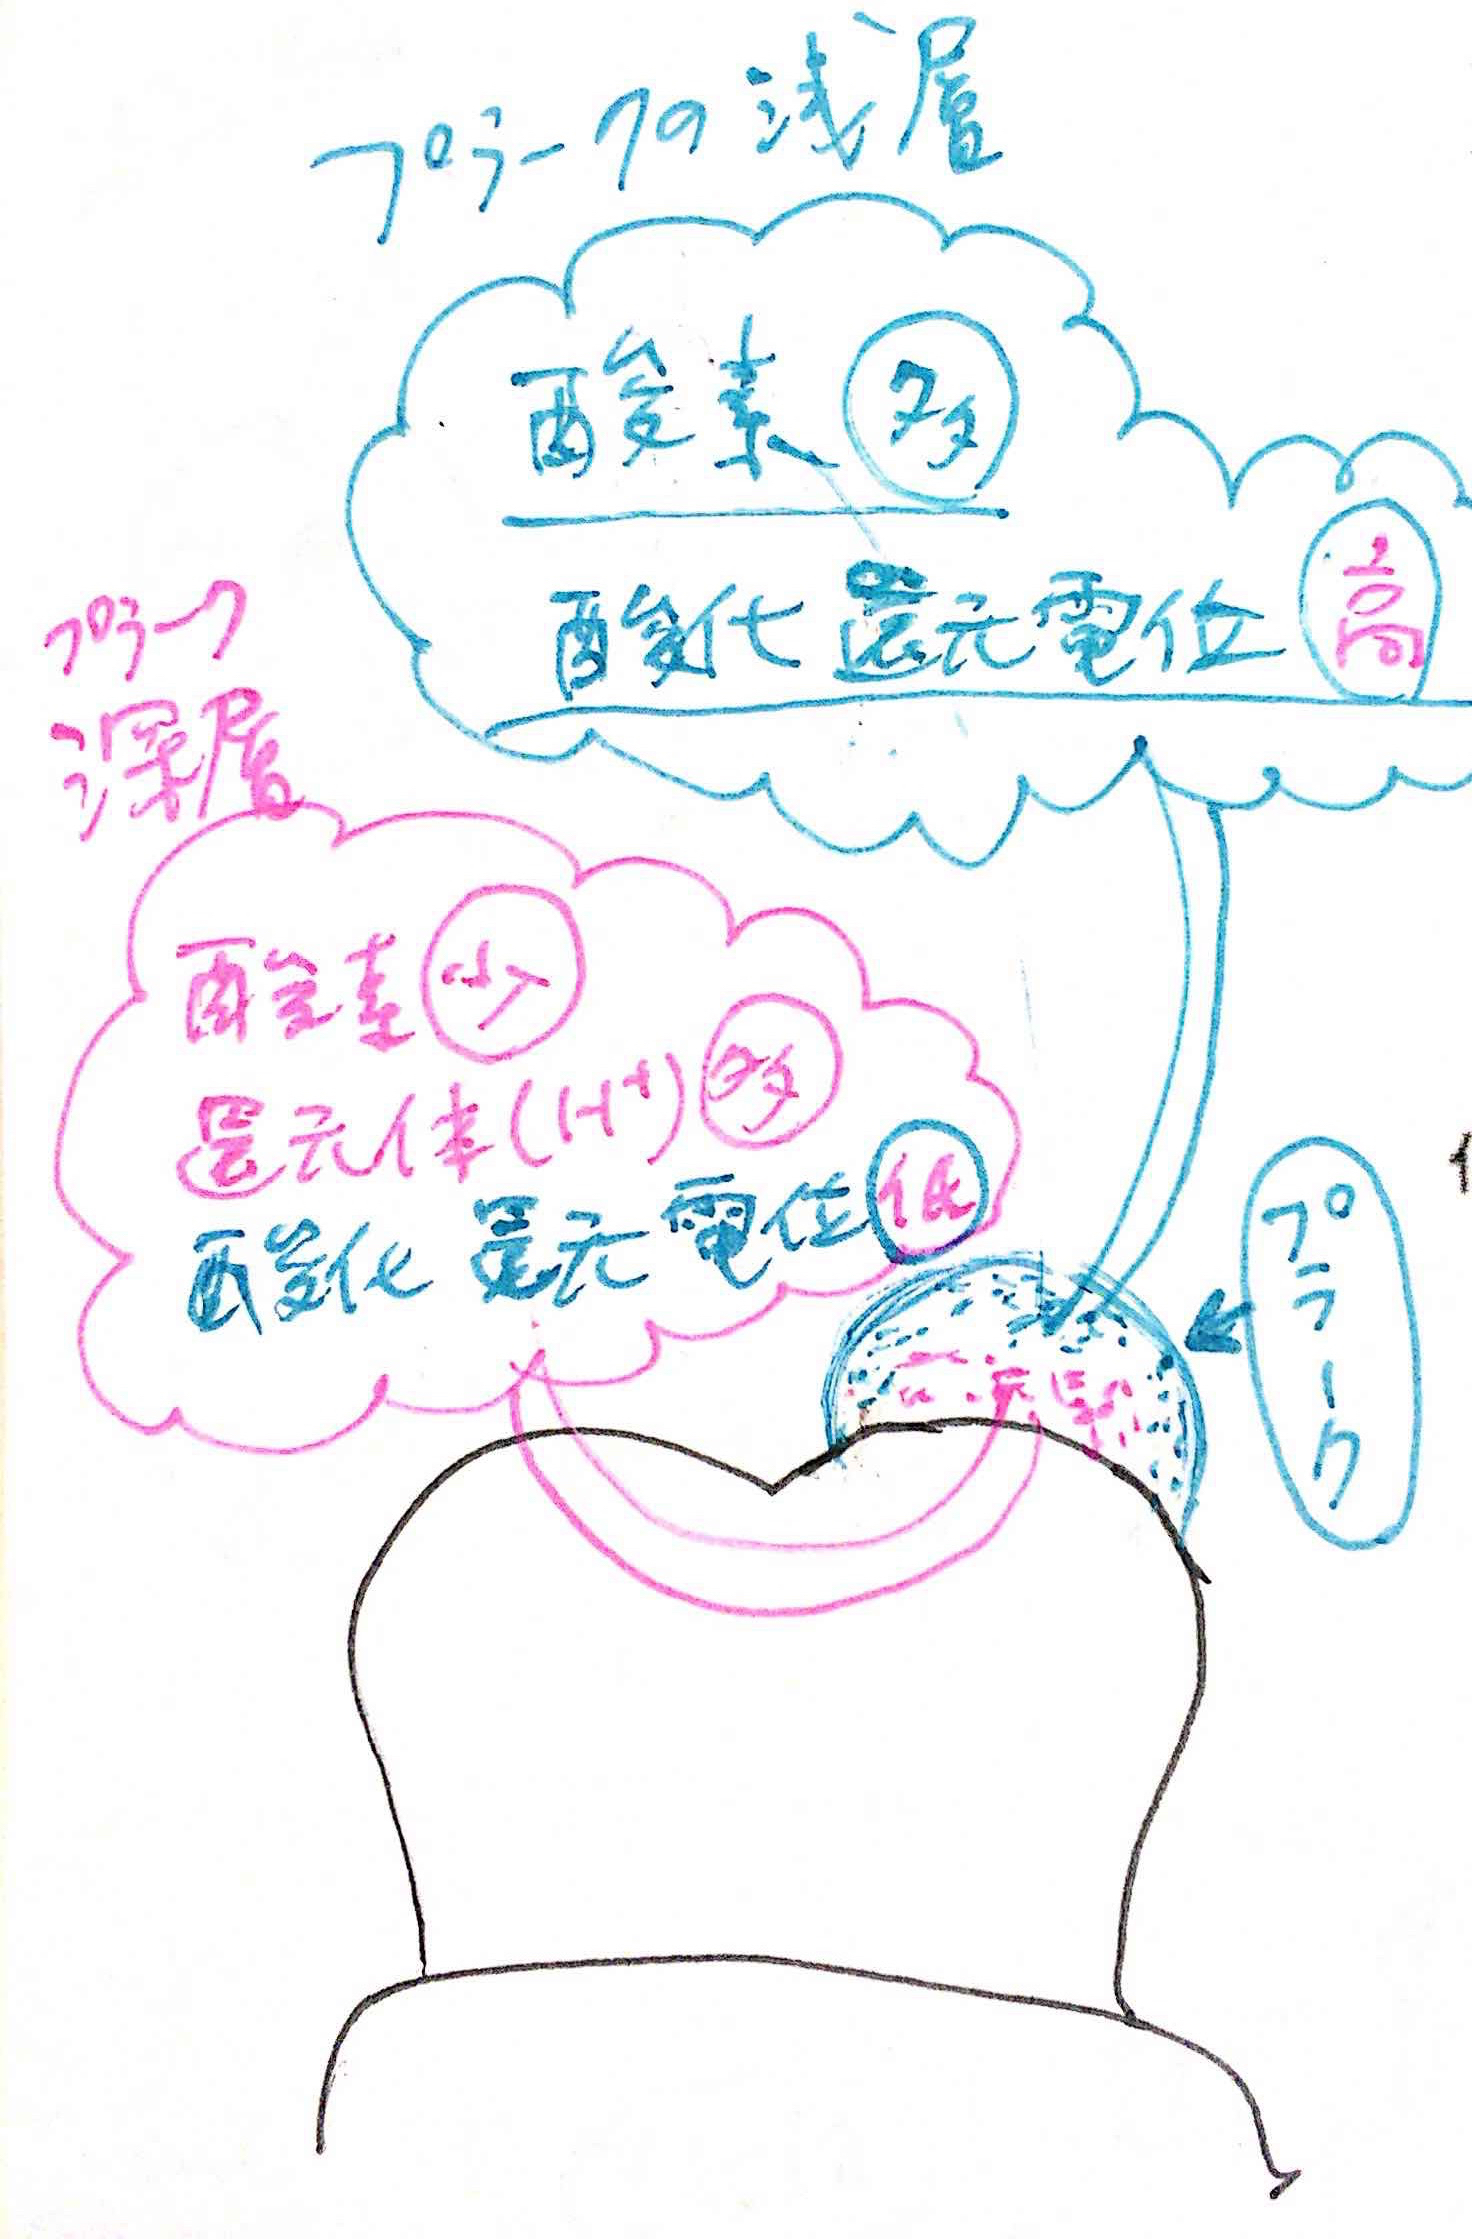 プラークの浅層
酸素 多
酸化還元電位 高
プラーク
深層
酸素 少
還元体(H⁺) 多
酸化還元電位 低
プラーク